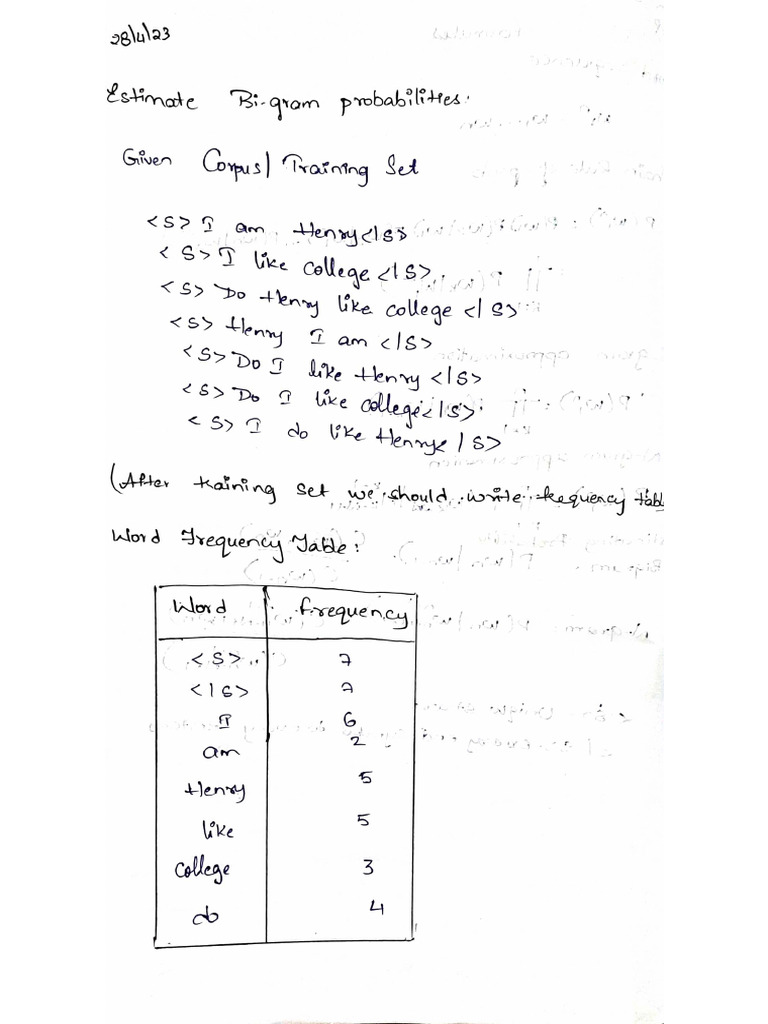 28/4/23
Estimate Bi-gram probabilities.
Given Corpus/Training Set
<S> I am Henry </S>
<S> I like college </S>
<S> Do Henry like college </S>
<S> Henry I am </S>
<S> Do I like Henry </S>
<S> Do I like college </S>
<S> I do like Henry </S>
(After training set we should write frequency table
Word Frequency Table:
Word Frequency
<S> 7
</S> 7
I 6
am 2
Henry 5
like 5
college 3
do 4